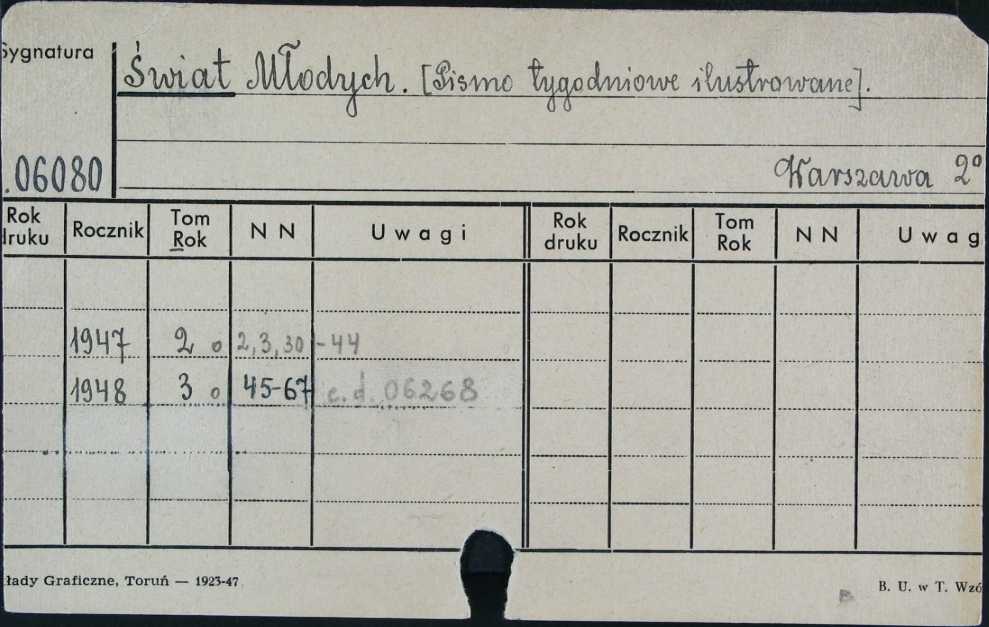 Sygnatura
Świat Młodych. [Pismo tygodniowe ilustrowane].
.06080
Warszawa 2°
Rok druku Rocznik Tom Rok N N Uwagi Rok druku Rocznik Tom Rok N N Uwag
1947 2 o 2,3,30-44
1948 3 o 45-67 c.d. 06268
łady Graficzne, Toruń — 1923-47
B. U. w T. Wzó
B